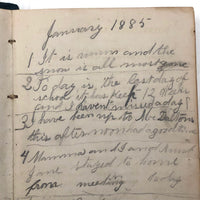 January 1885
1 It is warm and the
snow is all most gone
2 To day is the last day of
school it has kept 12 weeks
and I havent missed a day
3 I have been up to Mr
this after noon had a good time
4 Mamma and I and
Jane stayed to home
from meeting to day